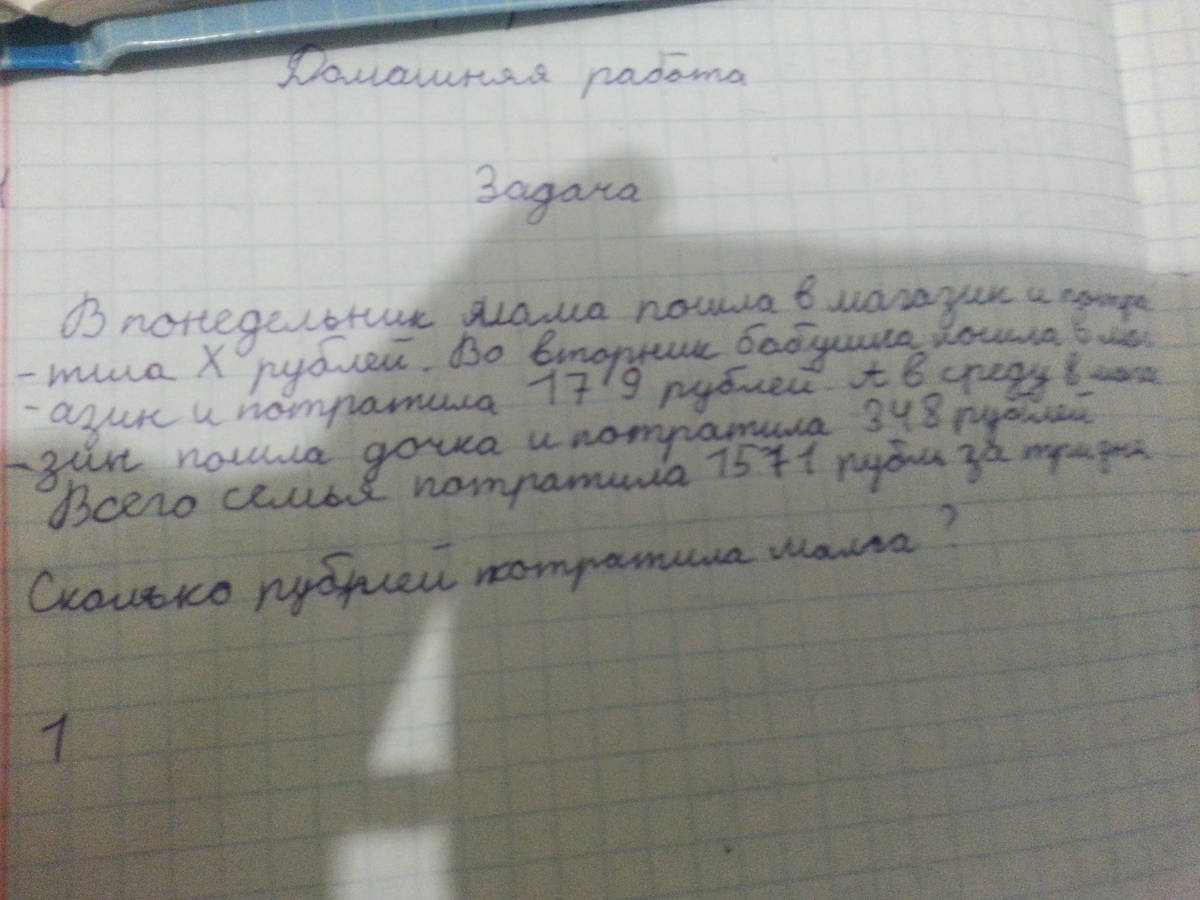 Домашняя работа
Задача
В понедельник мама пошла в магазин и потра
-тила X рублей. Во вторник бабушка пошла в маг
-азин и потратила 179 рублей. А в среду в мага
-зин пошла дочка и потратила 348 рублей
Всего семья потратила 1571 рубль за три дня
Сколько рублей потратила мама?
1